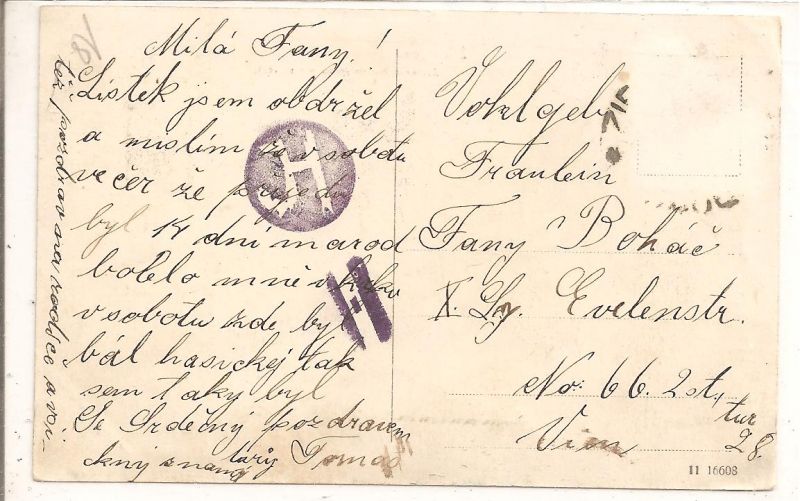 Milá Fany!
Lístek jsem obdržel
a mislím že v sobotu
večer že prijedu
byl 14 dní marod
bolelo mně v krku
v sobotu zde byl
bál hasickej tak
sem taky byl
Se Srdečný pozdravem
Tomáš
též pozdrav na rodiče a
Fraulein
Fany Boháč
X. Evelenstr.
No: 66. 2 st,
tur
28.
Vien
II 16608